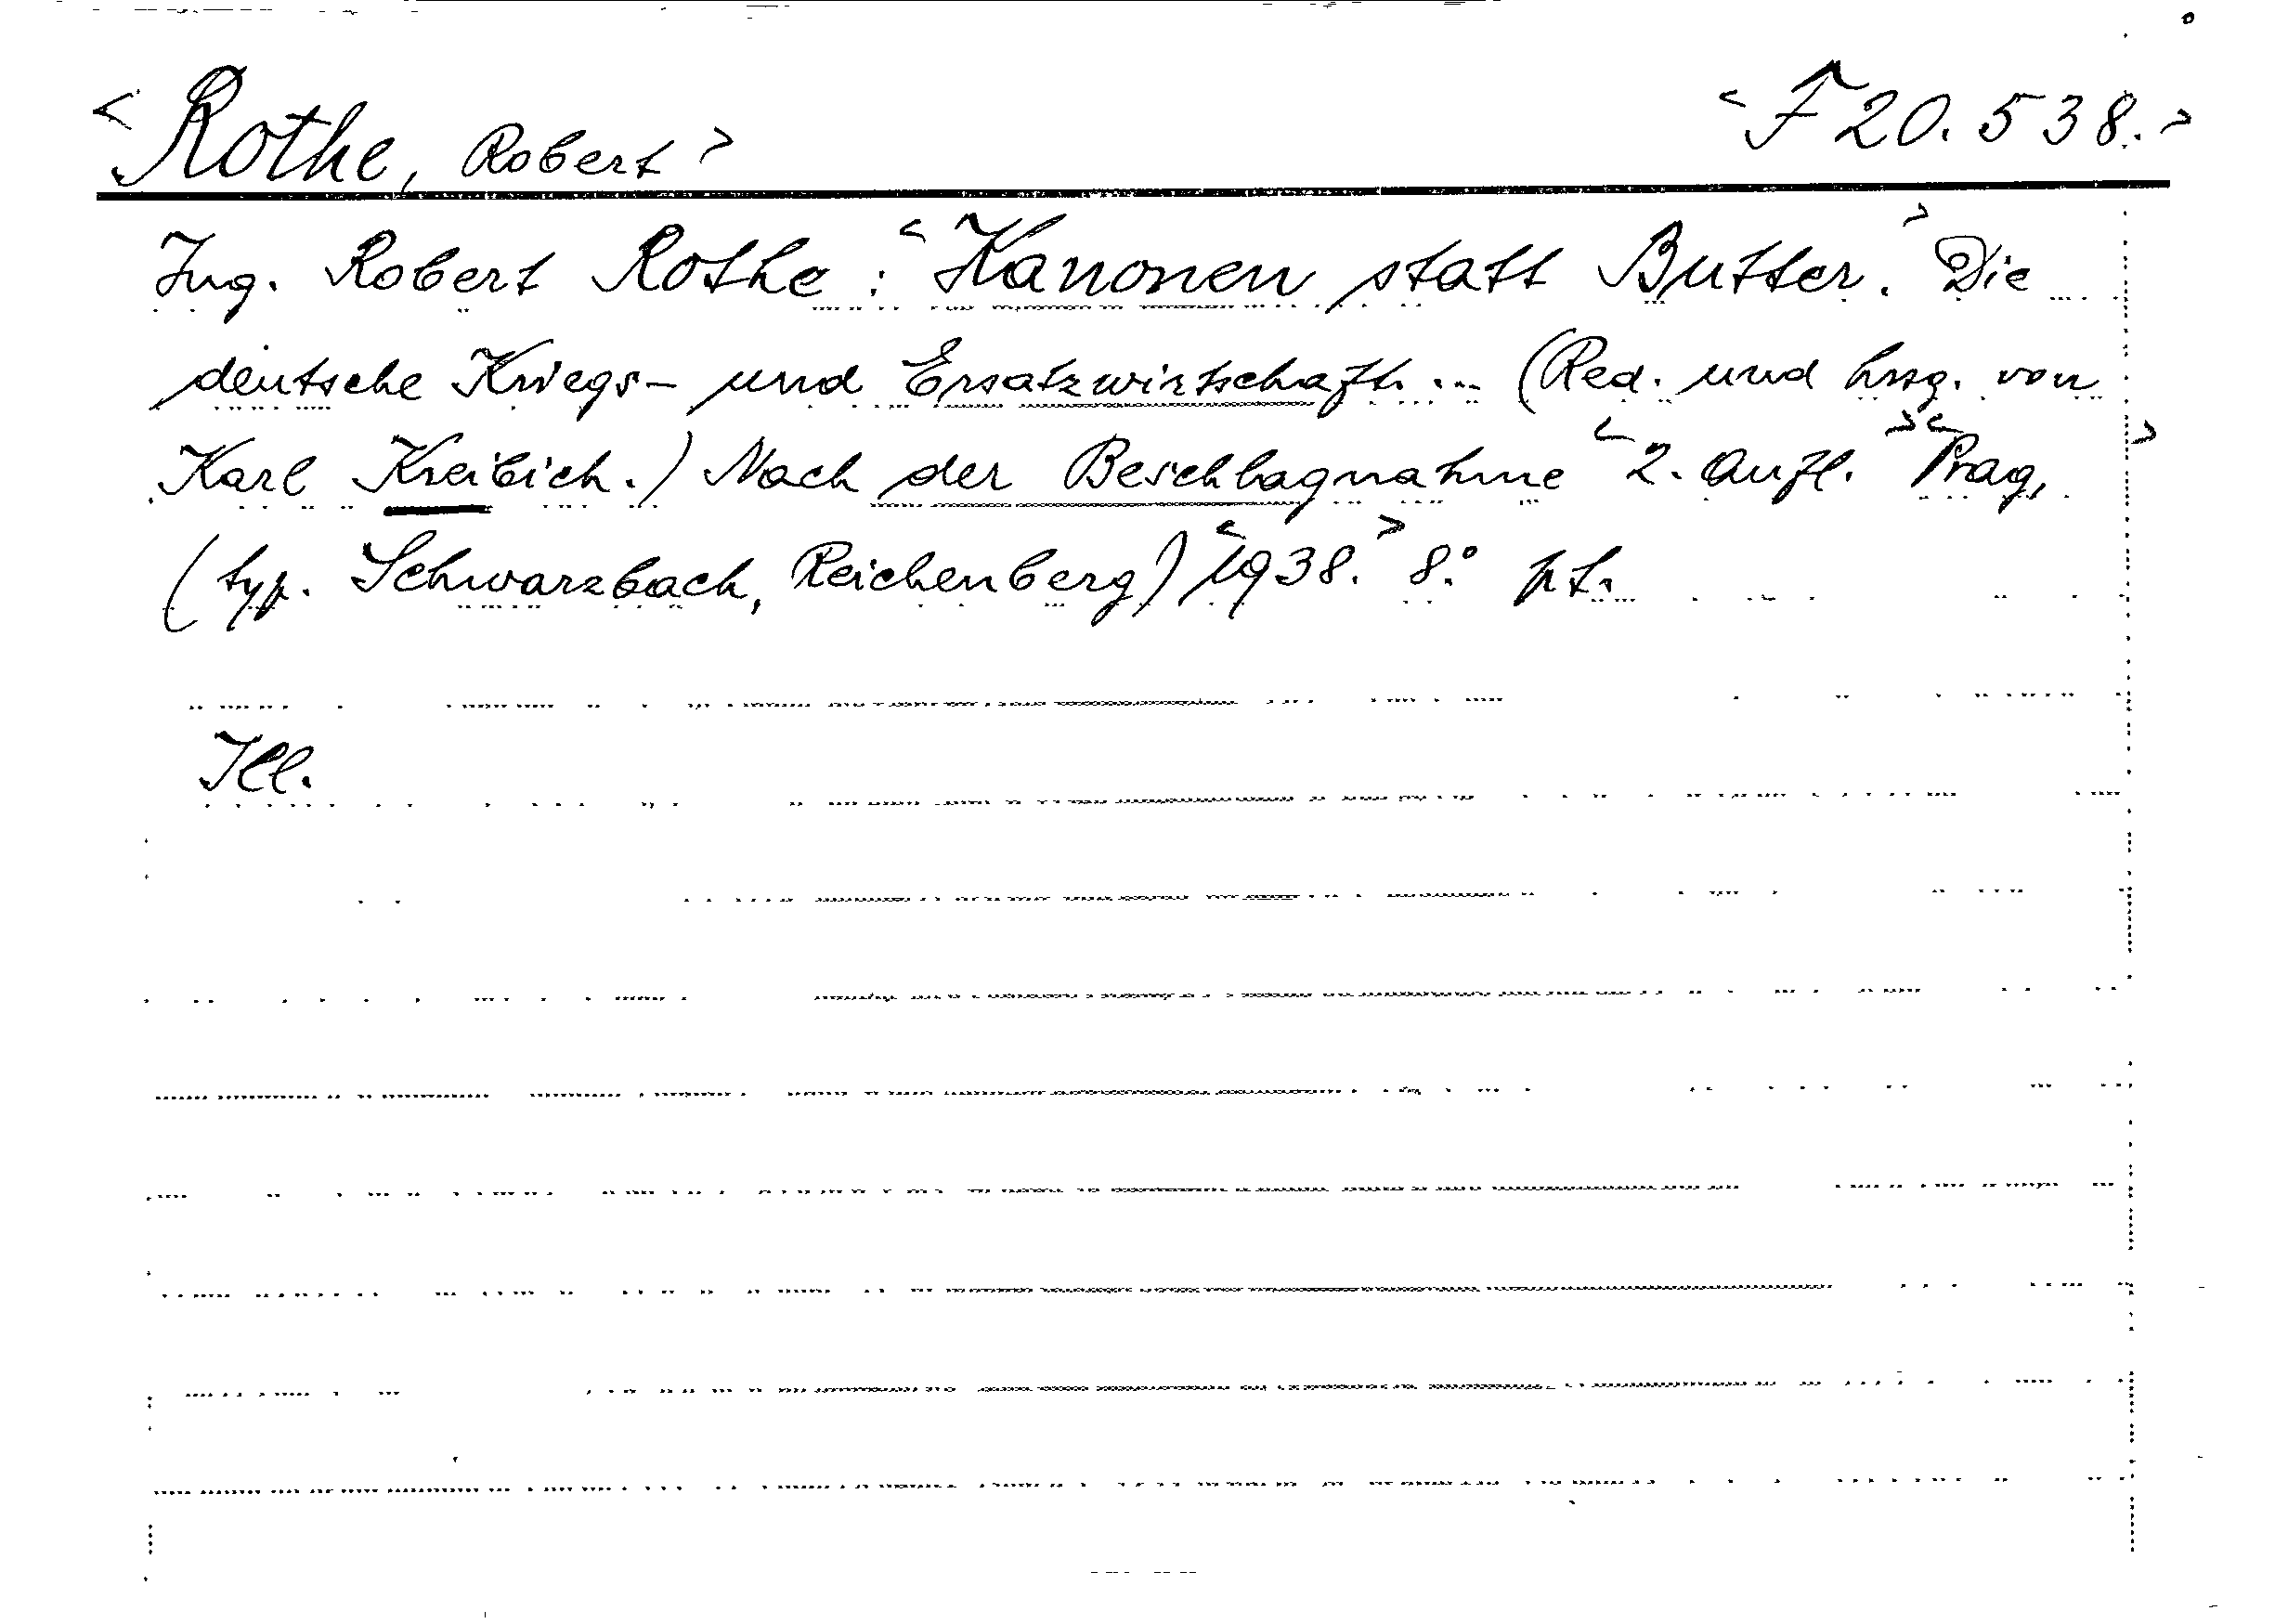 <Rothe, Robert> <F 20.538.>
Ing. Robert Rothe: <Kanonen statt Butter.> Die
deutsche Kriegs- und Ersatzwirtschaft. ... (Red. und hrsg. von
Karl Kreibich.) Nach der Beschlagnahme <2. Aufl.> <Prag,>
(typ. Schwarzbach, Reichenberg) <1938.> 8.° pt.
Ill.